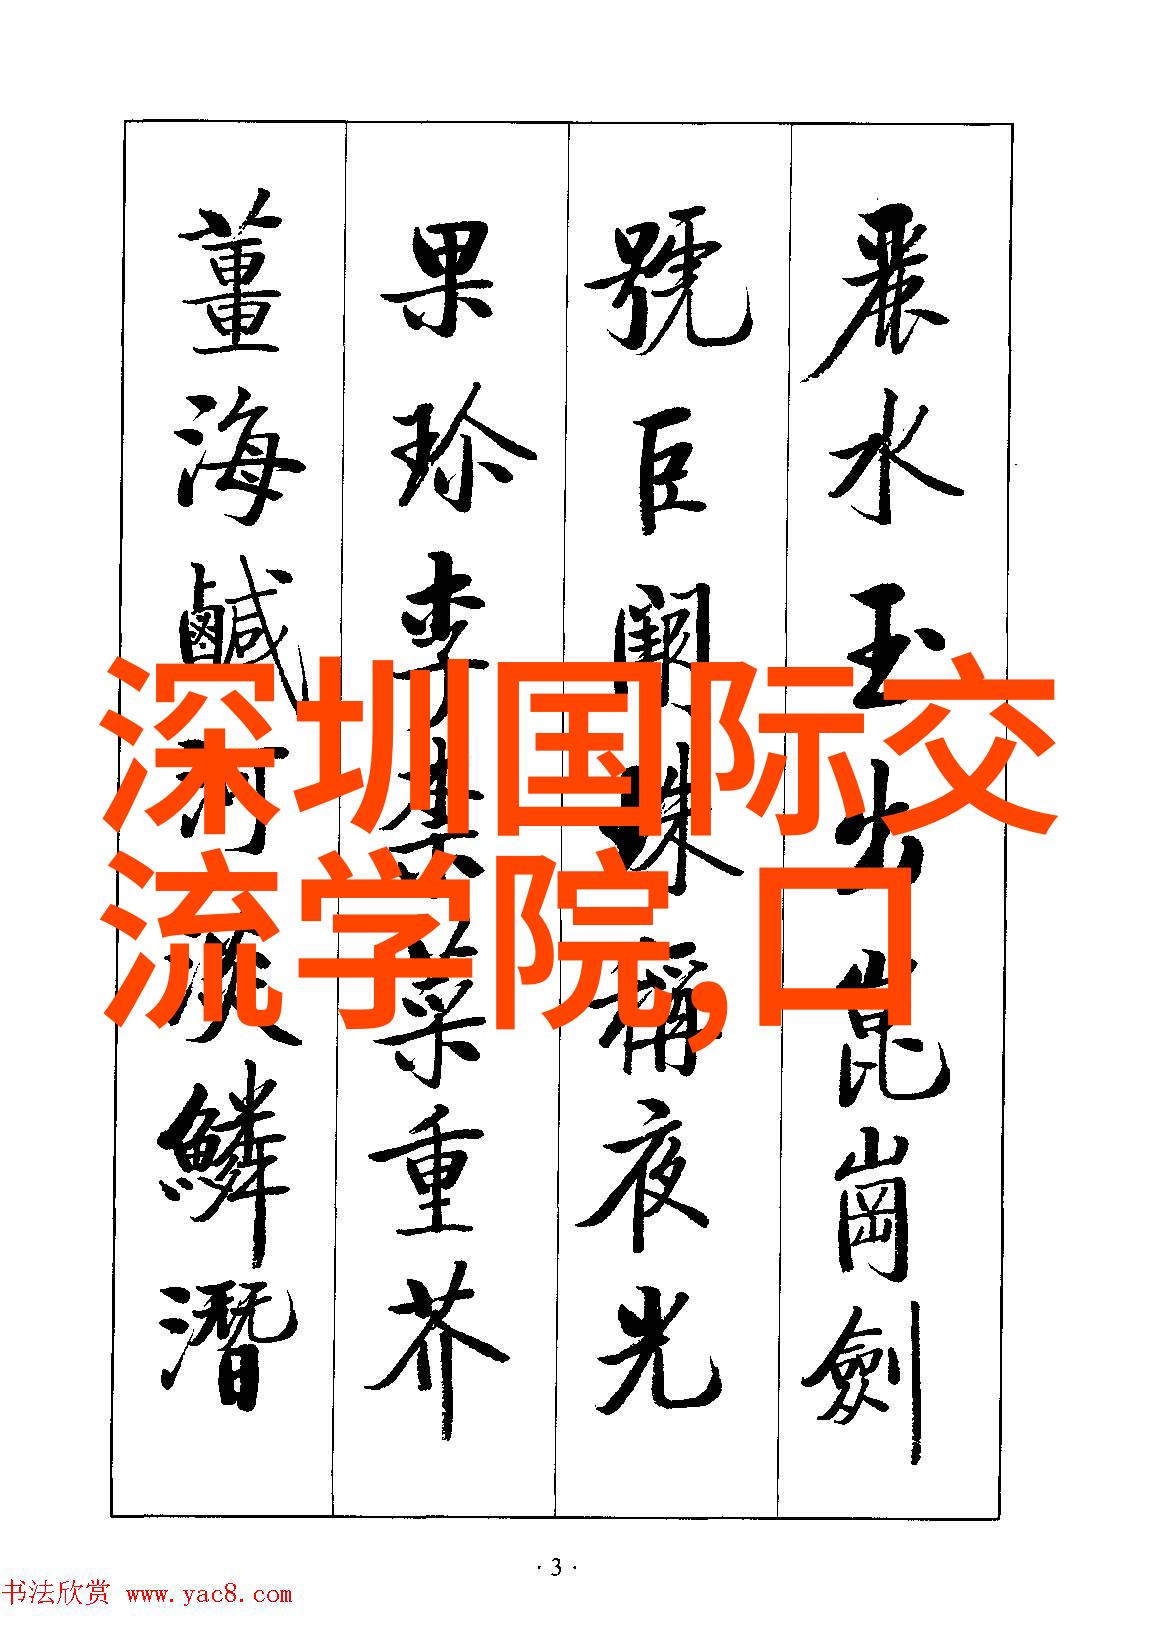 麗水玉出崑崗劍
號巨闕珠稱夜光
果珍李柰菜重芥
薑海鹹河淡鱗潛
深圳国际交
流学院,口
· 3 ·
书法欣赏 www.yac8.com